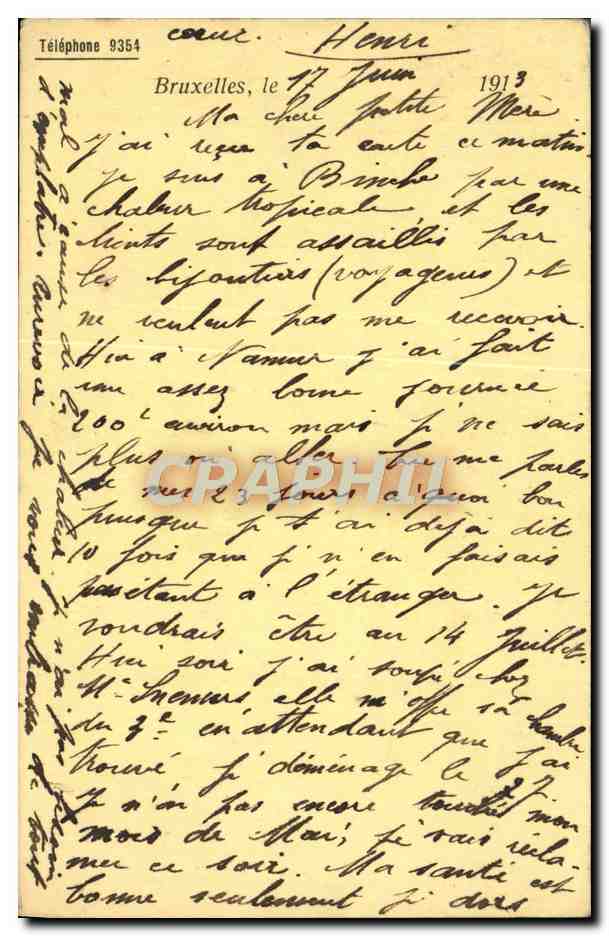 Téléphone 9354
Bruxelles, le 17 Juin 1913
Ma chère petite Mère
J'ai reçu ta carte ce matin.
je suis à Binche par une
chaleur tropicale et les
clients sont assaillis par
les bijoutiers (voyageurs) et
ne veulent pas me recevoir.
Hier à Namur j'ai fait
une assez bonne journée
200f environ mais je ne sais
plus où aller. Tu me parles
de mes 23 jours à quoi bon
puisque je t'ai déjà dit
10 fois que je n'en faisais
pas étant à l'étranger. Je
voudrais être au 14 Juillet.
Hier soir j'ai soupé chez
Me elle m'offre sa chambre
du 3e en attendant que j'ai
trouvé je déménage le 27.
Je n'ai pas encore touché mon
mois de Mai, je vais récla-
mer ce soir. Ma santé est
bonne seulement je dors
mal à cause de la chaleur je n'ai pas besoin
d'emplâtre. Aurevoir je vous embrasse de tout
cœur. Henri
CPAPHIL